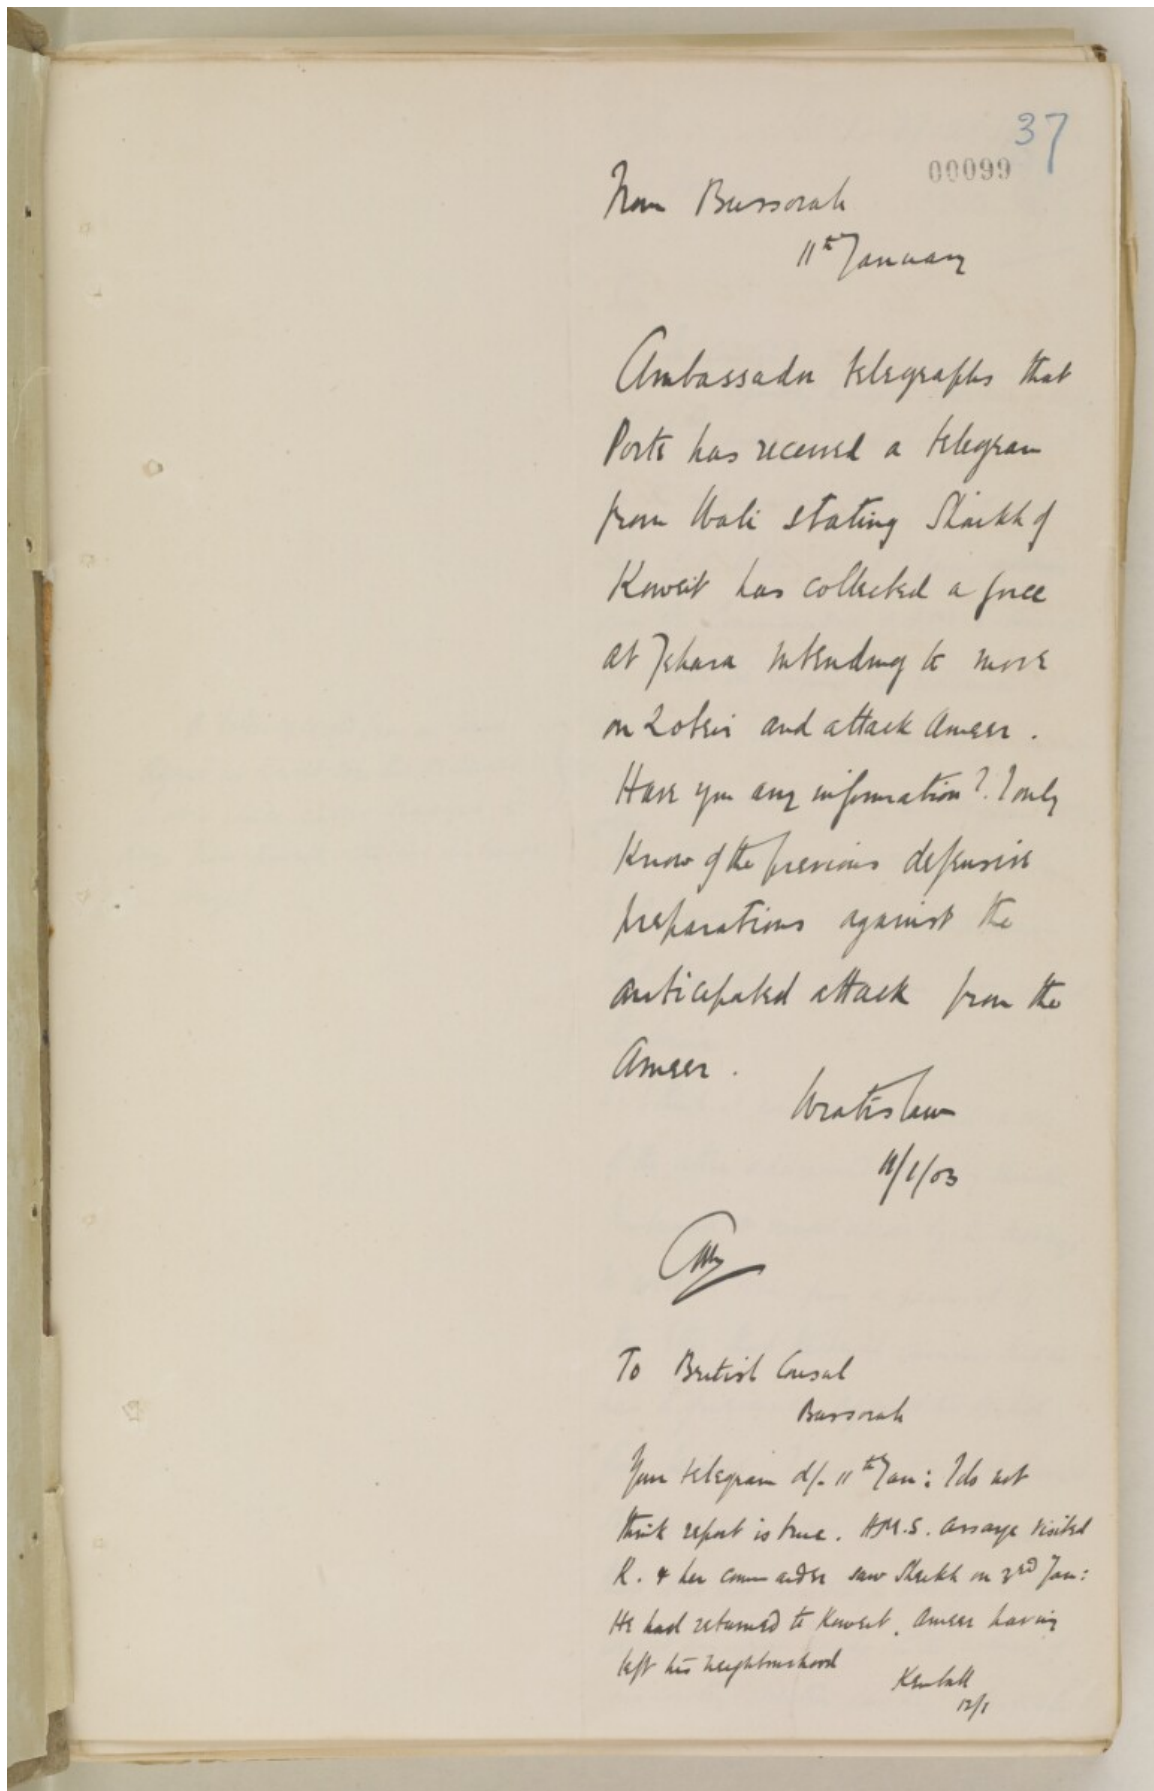 37
00099
From Bussorah
11th January
Ambassador telegraphs that
Porte has received a telegram
from Wali stating Shaikh of
Koweit has collected a force
at Jehara intending to move
on Zobeir and attack Ameer.
Have you any information? I only
know of the previous defensive
preparations against the
anticipated attack from the
Ameer.
Wratislaw
11/1/03
To British Consul
Bussorah
Your telegram d/- 11th Jan: I do not
think report is true. H.M.S. Assaye visited
K. & her commander saw Sheikh on 3rd Jan:
He had returned to Koweit, Ameer having
left his neighbourhood
Kemball
12/1